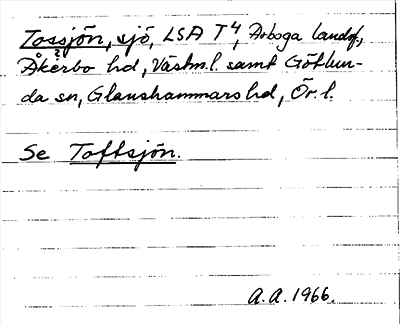 Tossjön, sjö, LSA T4, Arboga landsf.,
Åkerbo hd, Västm.l. samt Götlun-
da sn, Glanshammars hd, Ör. l.
Se Toftsjön.
A.A. 1966.